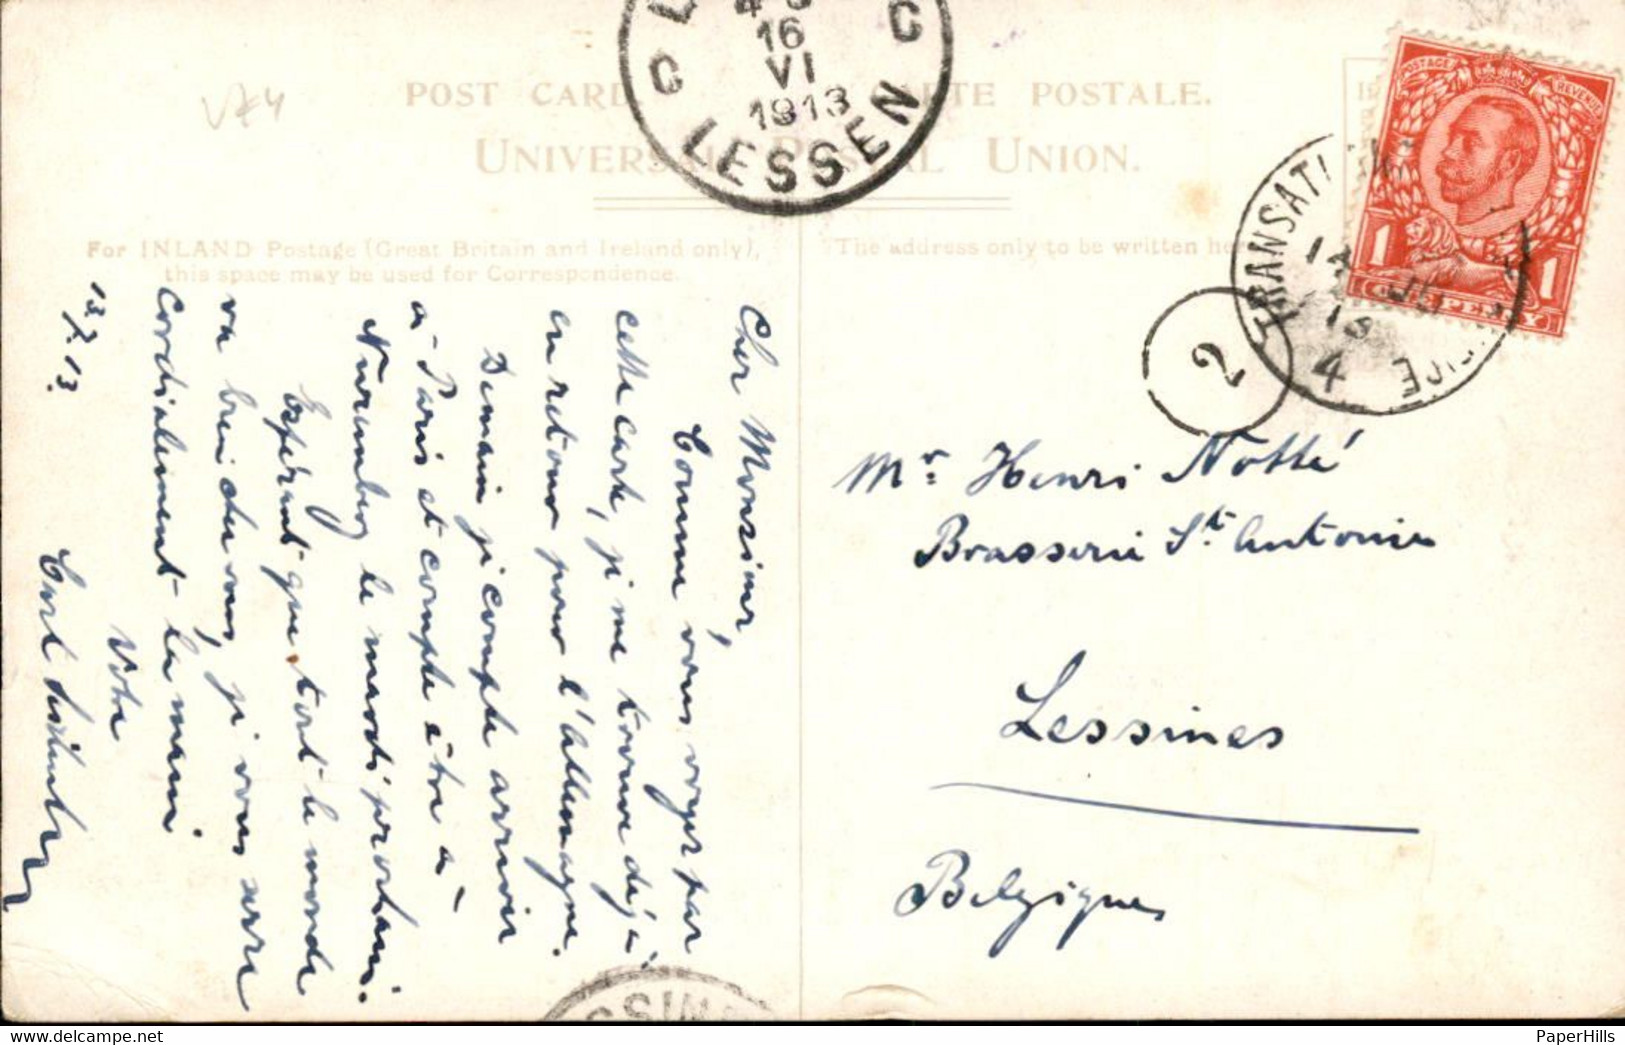 V74
POST CARD. CARTE POSTALE.
UNIVERSAL POSTAL UNION.
For INLAND Postage (Great Britain and Ireland only),
this space may be used for Correspondence.
The address only to be written here
16
VI
1913
LESSEN
POSTAGE REVENUE
1 1
ONE PENNY
TRANSATL
13
4
2
13.7.13.
Cher Monsieur,
Comme vous voyez par
cette carte, je me trouve déjà
en retour pour l'Allemagne.
Demain je compte arriver
à Paris et compte être à
Nuremberg le mardi prochain.
Espérant que tout le monde
va bien chez vous, je vous serre
cordialement la main
Votre
Carl
Mr. Henri Notté
Brasserie St. Antoine
Lessines
Belgique
SSIN
PaperHills